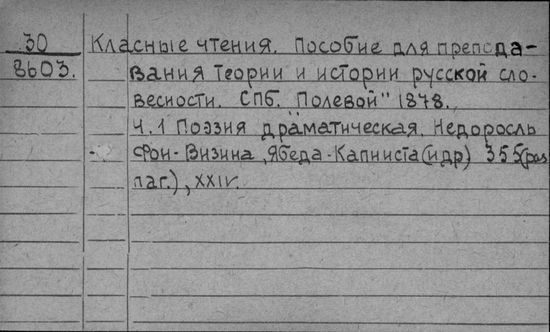 30 Класные чтения. Пособие для препода-
8603. вания теории и истории русской сло-
весности. СПб. Полевой" 1878.
Ч.1 Поэзия драматическая. Недоросль
Фон-Визина, Ябеда-Капниста(идр) 355(раз
паг.), XXIV.